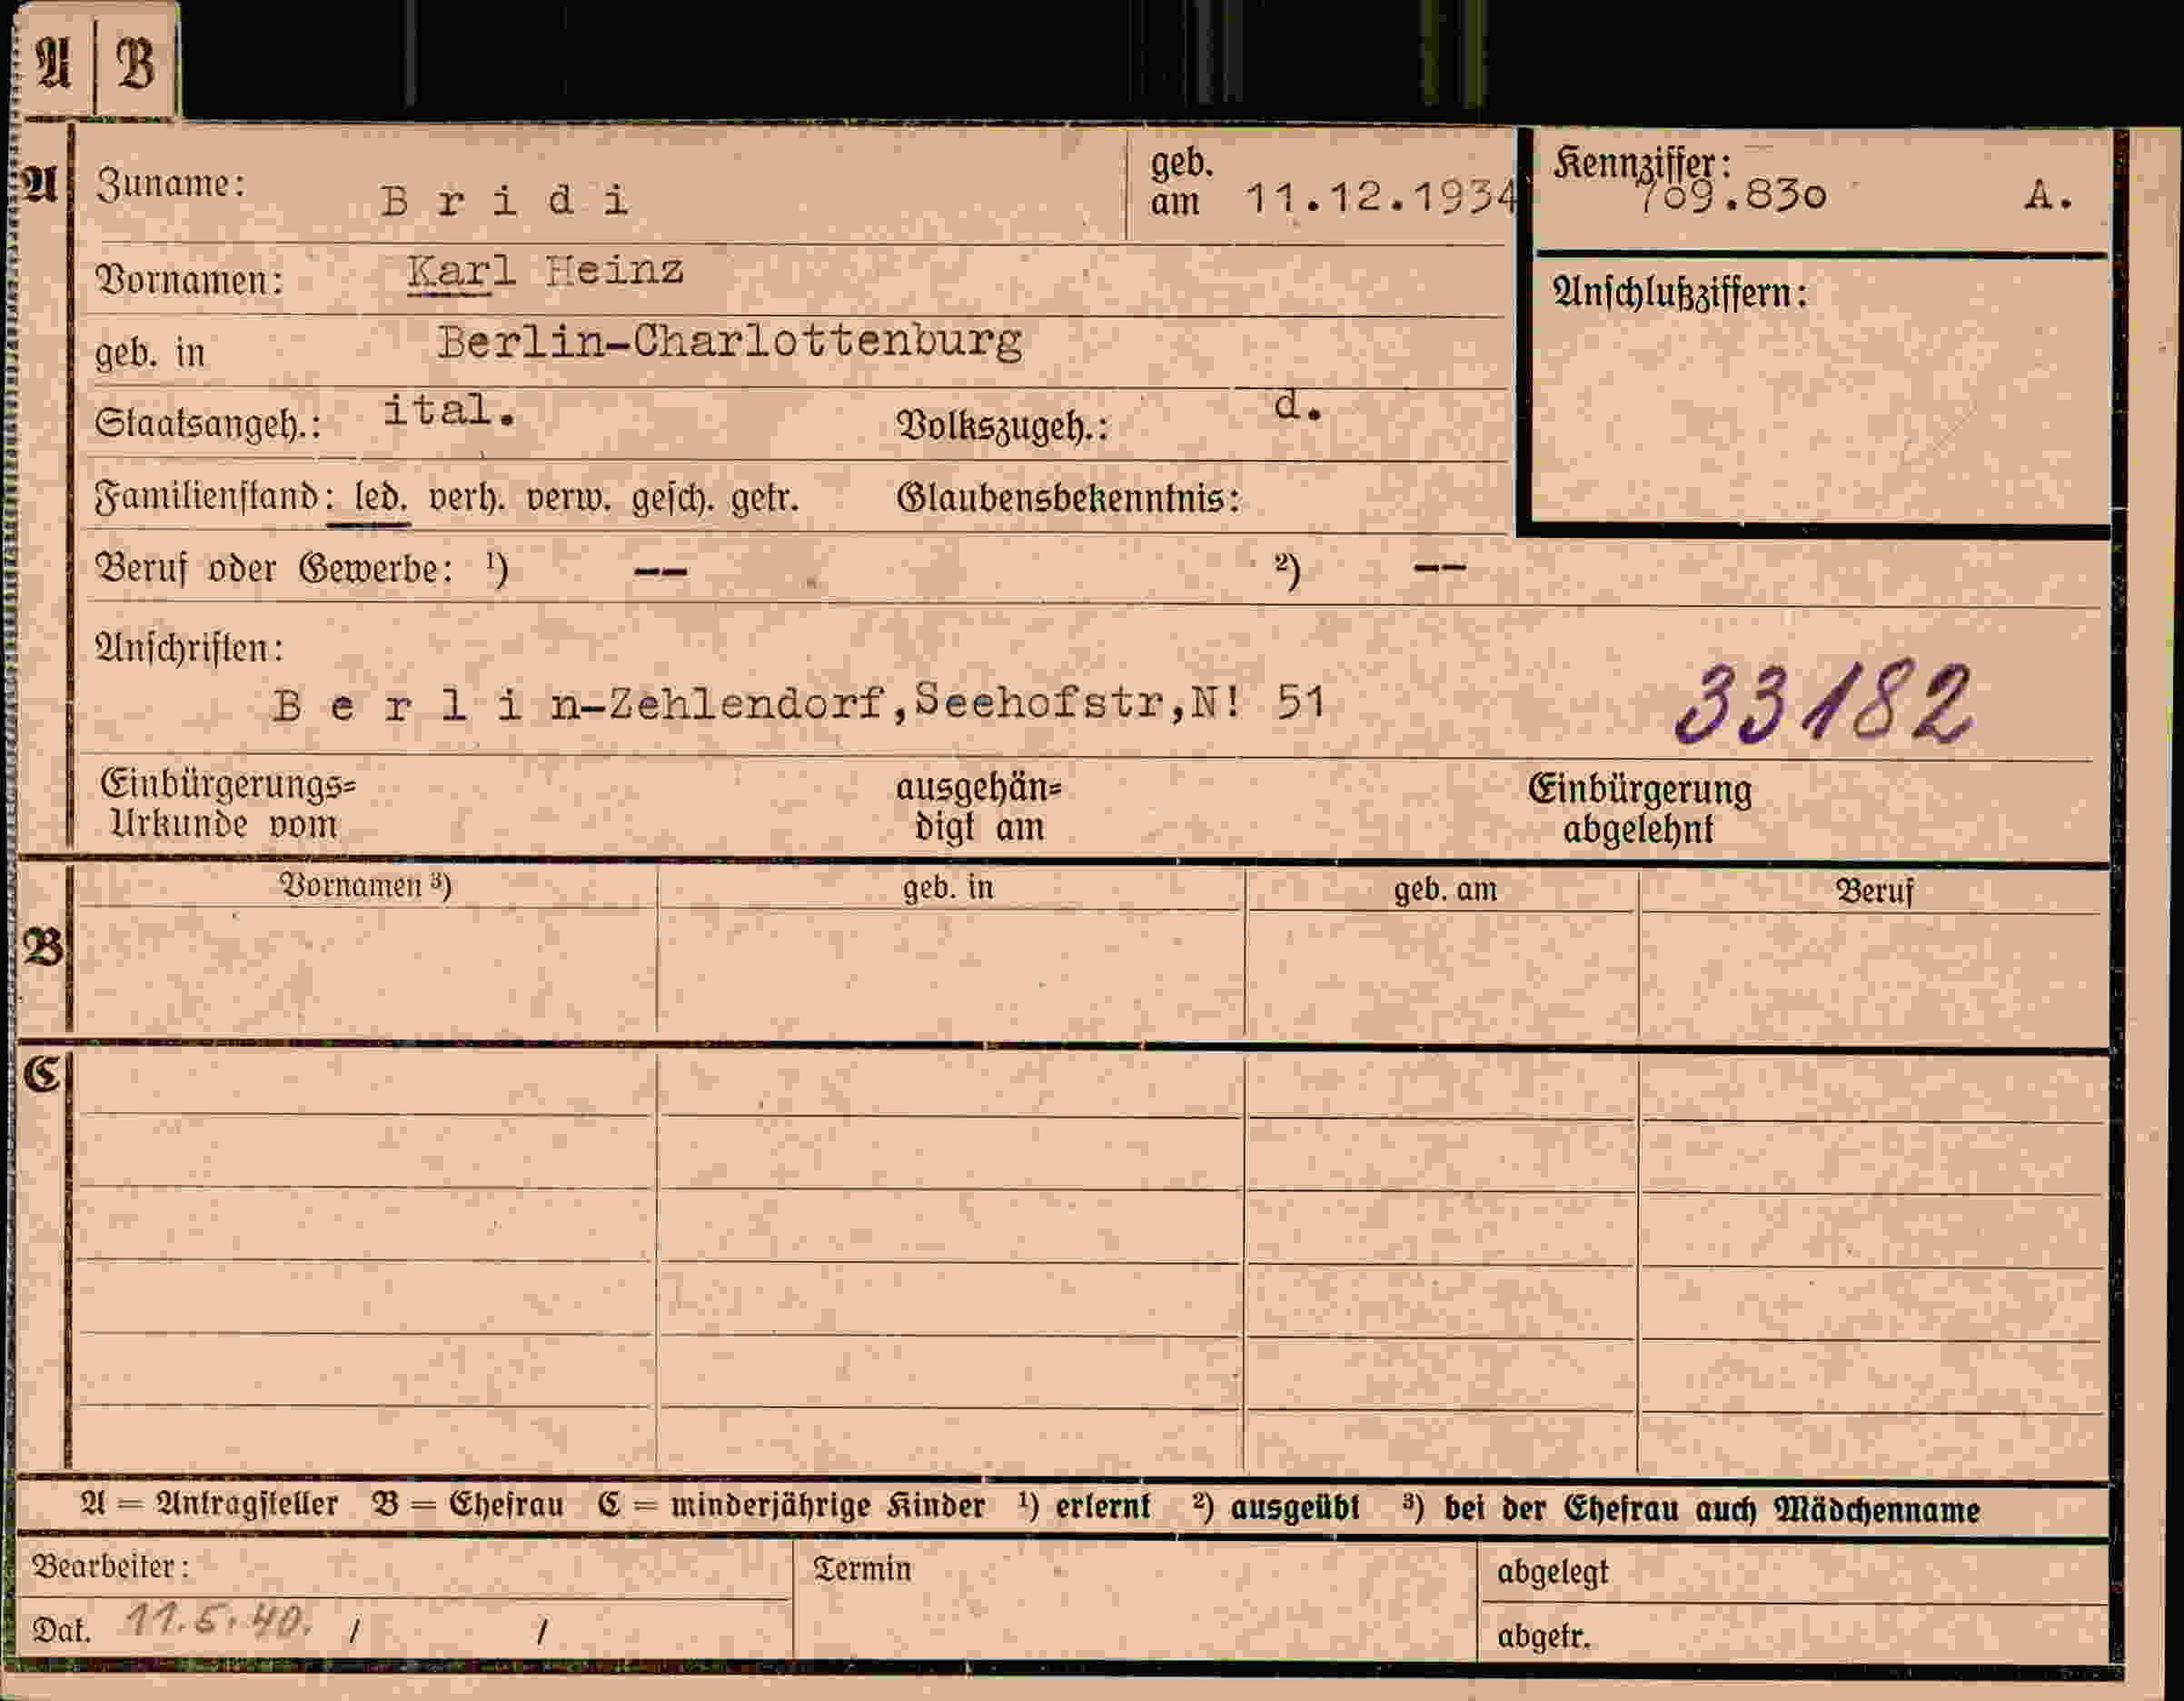 A B
A Zuname: B r i d i geb. am 11.12.1934 Kennziffer: 709.830 A.
Vornamen: Karl Heinz
Anschlußziffern:
geb. in Berlin-Charlottenburg
Staatsangeh.: ital. Volkszugeh.: d.
Familienstand: led. verh. verw. gesch. getr. Glaubensbekenntnis:
Beruf oder Gewerbe: ¹) -- ²) --
Anschriften:
B e r l i n-Zehlendorf,Seehofstr,N! 51 33182
Einbürgerungs= ausgehän= Einbürgerung
Urkunde vom digt am abgelehnt
Vornamen ³) geb. in geb. am Beruf
B
C
A = Antragsteller B = Ehefrau C = minderjährige Kinder ¹) erlernt ²) ausgeübt ³) bei der Ehefrau auch Mädchenname
Bearbeiter: Termin abgelegt
Dat. 11.5.40. / / abgetr.